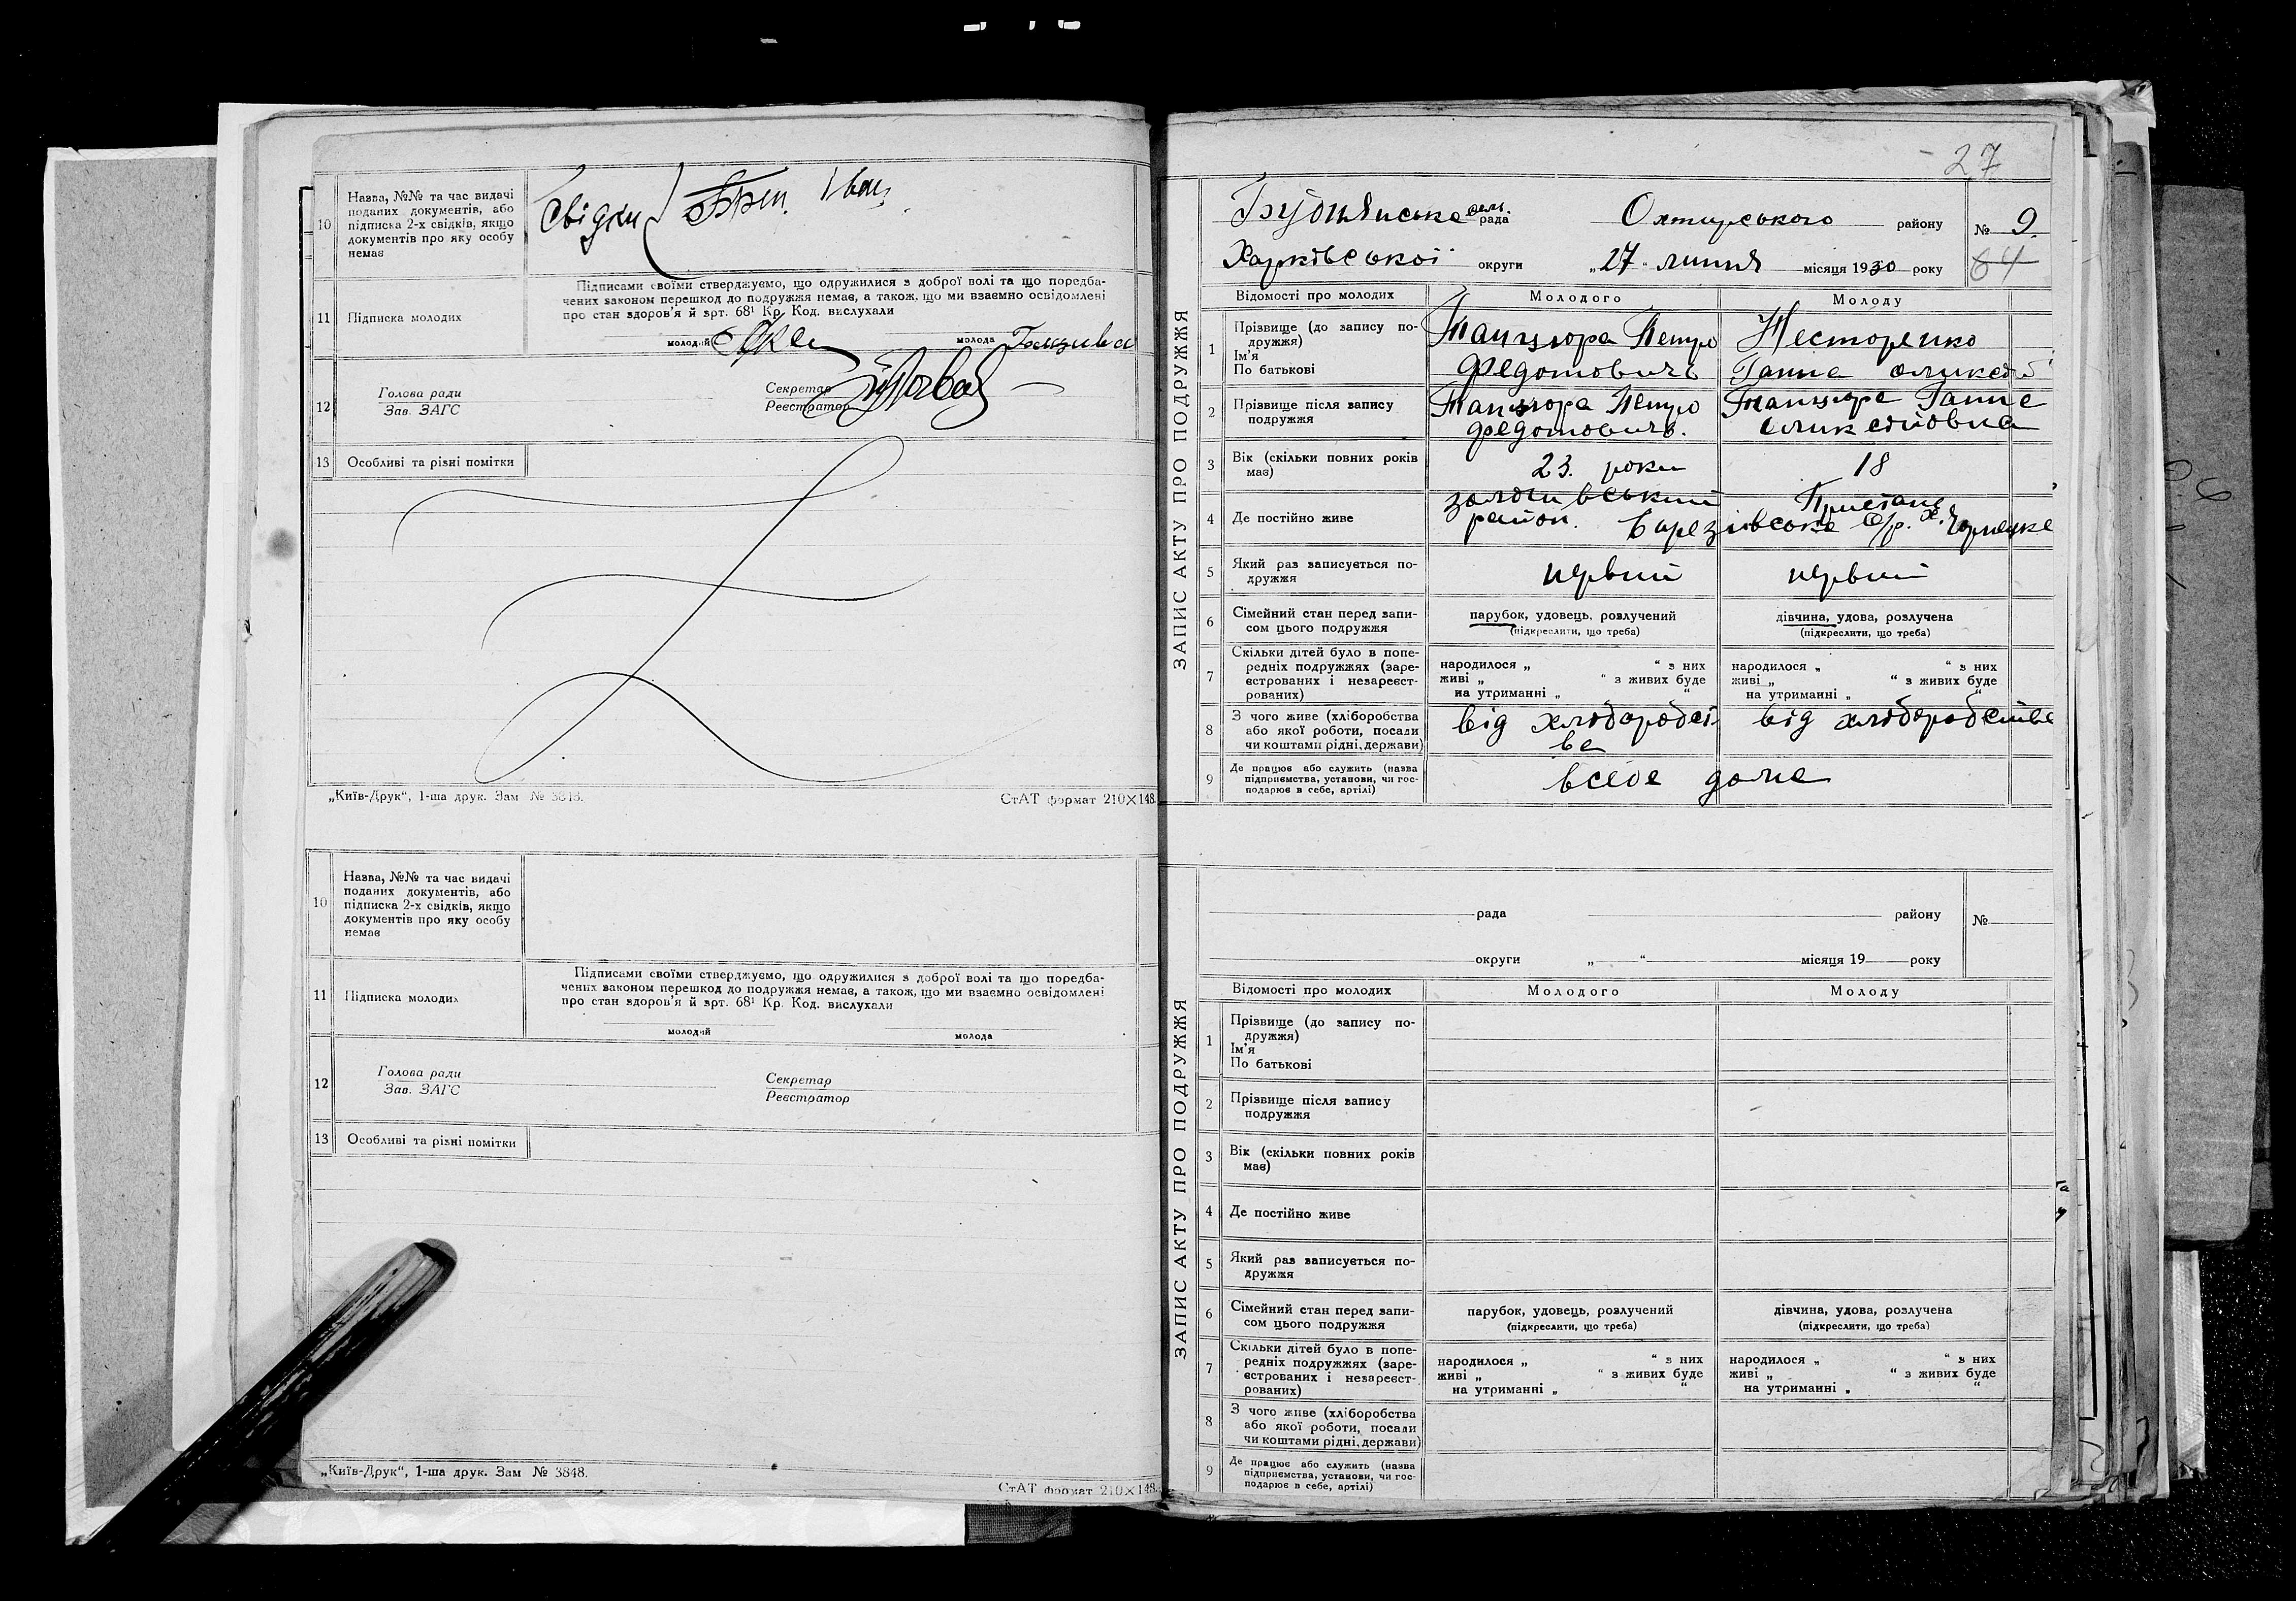 10
Назва, №№ та час видачі
поданих документів, або
підписка 2-х свідків, якщо
документів про яку особу
немає
Свідки
Іван
11
Підписка молодих
Підписами своїми стверджуємо, що одружилися з доброї волі та що поредба-
чених законом перешкод до подружжя немає, а також, що ми взаємно освідомлені
про стан здоров'я й зрт. 68¹ Кр. Код. вислухали
молодий
молода
12
Голова ради
Зав. ЗАГС
Секретар
Реєстратор
13
Особливі та різні помітки
„Київ-Друк“, 1-ша друк. Зам № 3848.
СтАТ формат 210×148.
10
Назва, №№ та час видачі
поданих документів, або
підписка 2-х свідків, якщо
документів про яку особу
немає
11
Підписка молодих
Підписами своїми стверджуємо, що одружилися з доброї волі та що поредба-
чених законом перешкод до подружжя немає, а також, що ми взаємно освідомлені
про стан здоров'я й зрт. 68¹ Кр. Код. вислухали
молодий
молода
12
Голова ради
Зав. ЗАГС
Секретар
Реєстратор
13
Особливі та різні помітки
„Київ-Друк“, 1-ша друк. Зам № 3848.
СтАТ формат 210×148.
27
ЗАПИС АКТУ ПРО ПОДРУЖЖЯ
сель рада Охтирського району № 9.
Харківської округи „27“ липня місяця 1930 року 64
Відомості про молодих
Молодого
Молоду
1
Прізвище (до запису по-
дружжя)
Ім'я
По батькові
Танцюра Петро
Федотовичь
Несторенко
Ганна
2
Прізвище після запису
подружжя
Танцюра Петро
Федотовичь.
Танцюра Ганна
3
Вік (скільки повних років
має)
23. роки
18
4
Де постійно живе
район.
5
Який раз записується по-
дружжя
первий
первий
6
Сімейний стан перед запи-
сом цього подружжя
парубок, удовець, розлучений
(підкреслити, що треба)
дівчина, удова, розлучена
(підкреслити, що треба)
7
Скільки дітей було в попе-
редніх подружжях (заре-
єстрованих і незареєст-
рованих)
народилося „ “ з них
живі „ “ з живих буде
на утриманні „ “
народилося „ “ з них
живі „ “ з живих буде
на утриманні „ “
8
З чого живе (хліборобства
або якої роботи, посади
чи коштами рідні, держави)
від хлібородст
ва
від хлібородства
9
Де працює або служить (назва
підприємства, установи, чи гос-
подарює в себе, артілі)
всебе дома
ЗАПИС АКТУ ПРО ПОДРУЖЖЯ
рада району №
округи „ “ місяця 19 року
Відомості про молодих
Молодого
Молоду
1
Прізвище (до запису по-
дружжя)
Ім'я
По батькові
2
Прізвище після запису
подружжя
3
Вік (скільки повних років
має)
4
Де постійно живе
5
Який раз записується по-
дружжя
6
Сімейний стан перед запи-
сом цього подружжя
парубок, удовець, розлучений
(підкреслити, що треба)
дівчина, удова, розлучена
(підкреслити, що треба)
7
Скільки дітей було в попе-
редніх подружжях (заре-
єстрованих і незареєст-
рованих)
народилося „ “ з них
живі „ “ з живих буде
на утриманні „ “
народилося „ “ з них
живі „ “ з живих буде
на утриманні „ “
8
З чого живе (хліборобства
або якої роботи, посади
чи коштами рідні, держави)
9
Де працює або служить (назва
підприємства, установи, чи гос-
подарює в себе, артілі)